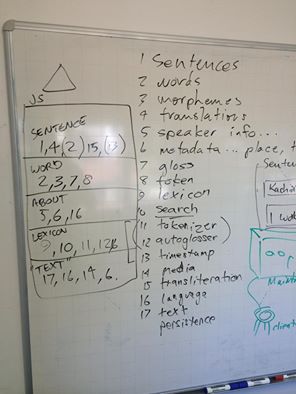 JS
SENTENCE
1,4,(2) 15, (13)
WORD
2,3,7,8
ABOUT
5,6,16
LEXICON
9,10,11,12
"TEXT"
17,16,14,6.
1 Sentences
2 words
3 morphemes
4 translations
5 speaker info...
6 metadata... place, t
7 gloss
8 token
9 lexicon
10 search
11 tokenizer
12 autoglosser
13 timestamp
14 media
15 transliteration
16 language
17 text
persistence
Senten
Kachin
1 wor
client